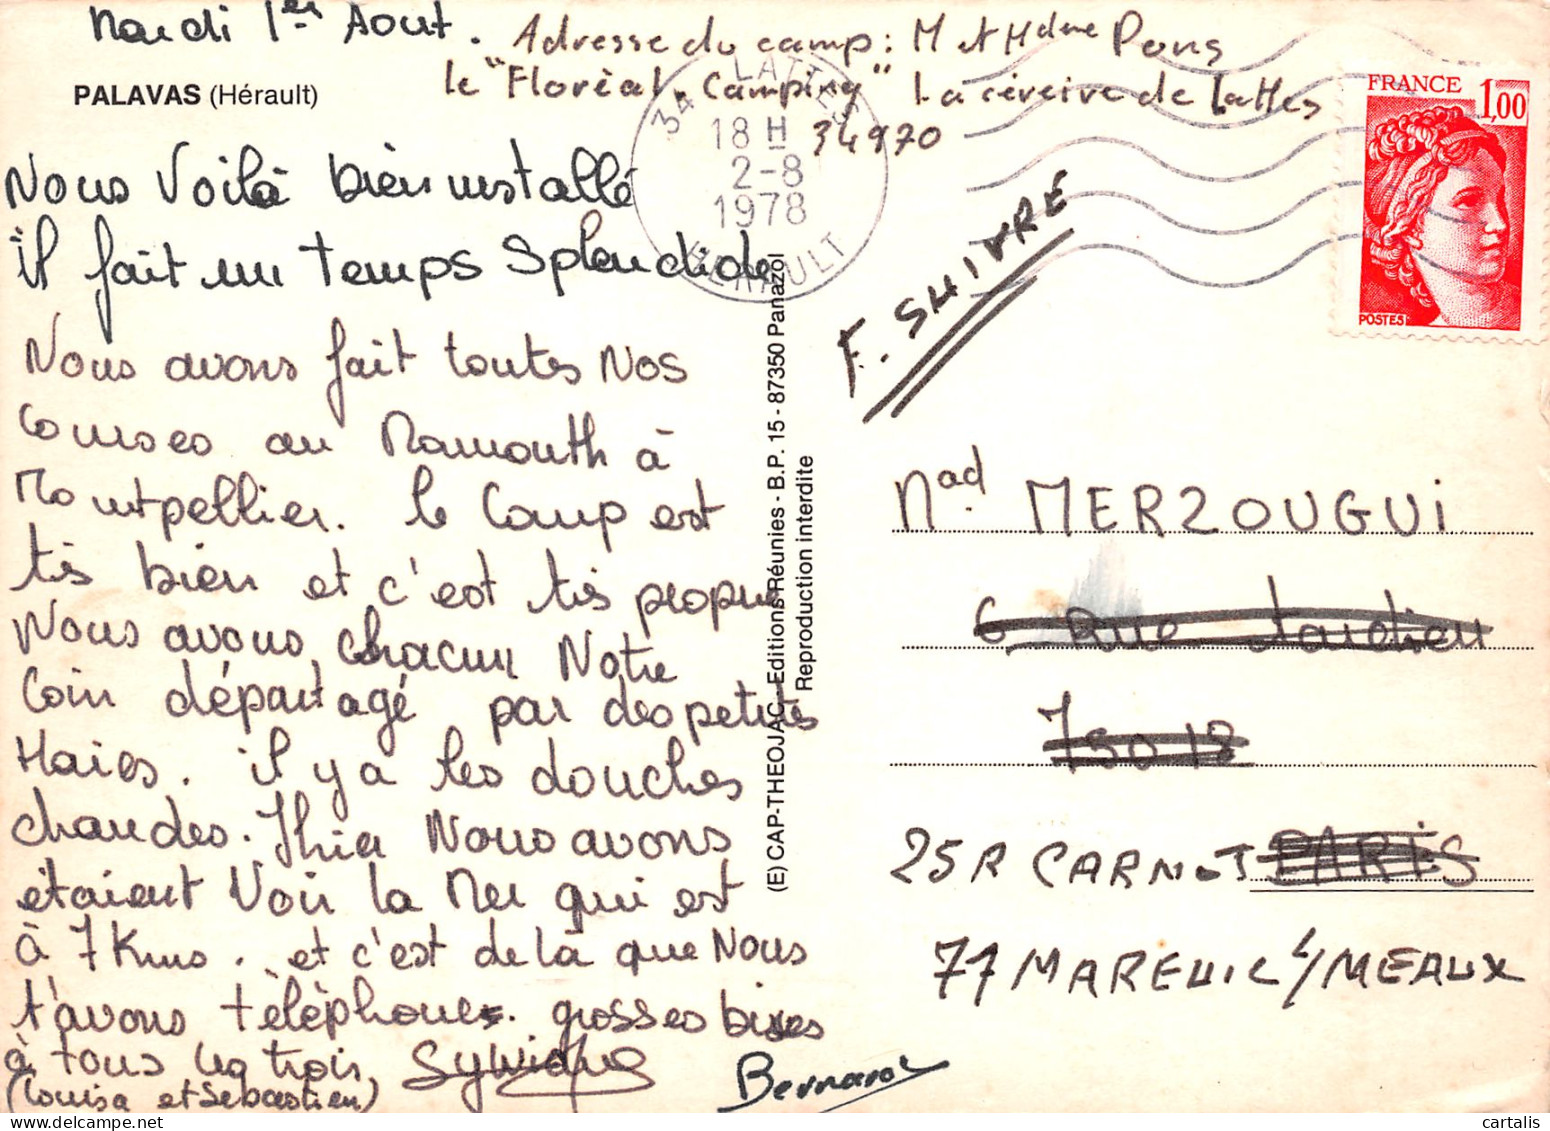 Mardi 1er Aout.
Adresse du camp: M et Mdme Pons
le "Floréal. Camping" La céreire de Lattes
34970
PALAVAS (Hérault)
34 LATTES
18 H
2-8
1978
HERAULT
FRANCE 1,00
POSTES
Nous Voilà bien installé
il fait un temps Splendide
Nous avons fait toutes Nos
Courses au Mamouth à
Montpellier. le Camp est
très bien et c'est très propre
Nous avons chacun Notre
Coin départagé par des petites
Haies. il y a les douches
chaudes. Ihier Nous avons
étaient Voir la Mer qui est
à 7 Kms. et c'est de là que Nous
t'avons téléphones. grosses bises
à tous les trois Sylviane
(Louisa et Sébastien) Bernard
(E) CAP-THEOJAC - Editions Réunies - B.P. 15 - 87350 Panazol
Reproduction interdite
F. SUIVRE
Mad. MERZOUGUI
6 Rue Tardieu
75018
25 R CARNOT PARIS
77 MAREUIL L/MEAUX
cartalis